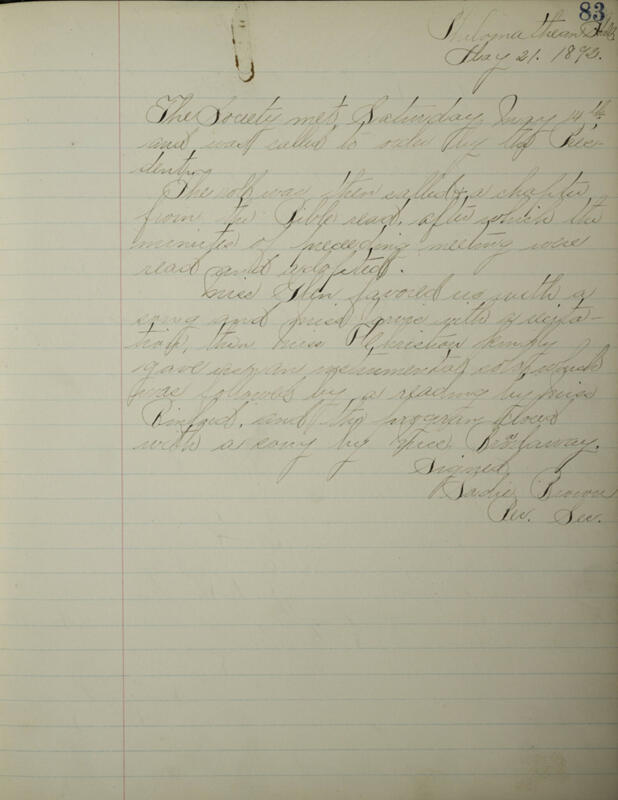 83
Philomathean Hall,
May 21. 1892.
The Society met Saturday May 14th
and was called to order by the Pres-
ident.
The roll was then called & a chapter
from the Bible read, after which the
minutes of preceding meeting were
read and adopted.
Miss Glen favored us with a
song and Miss with a recita-
tion, then Miss Christian kindly
gave us an instrumental solo which
was followed by a reading by Miss
Binford, and the program closed
with a song by Miss Broadaway.
Signed
Sadie Brown
Rec. Sec.